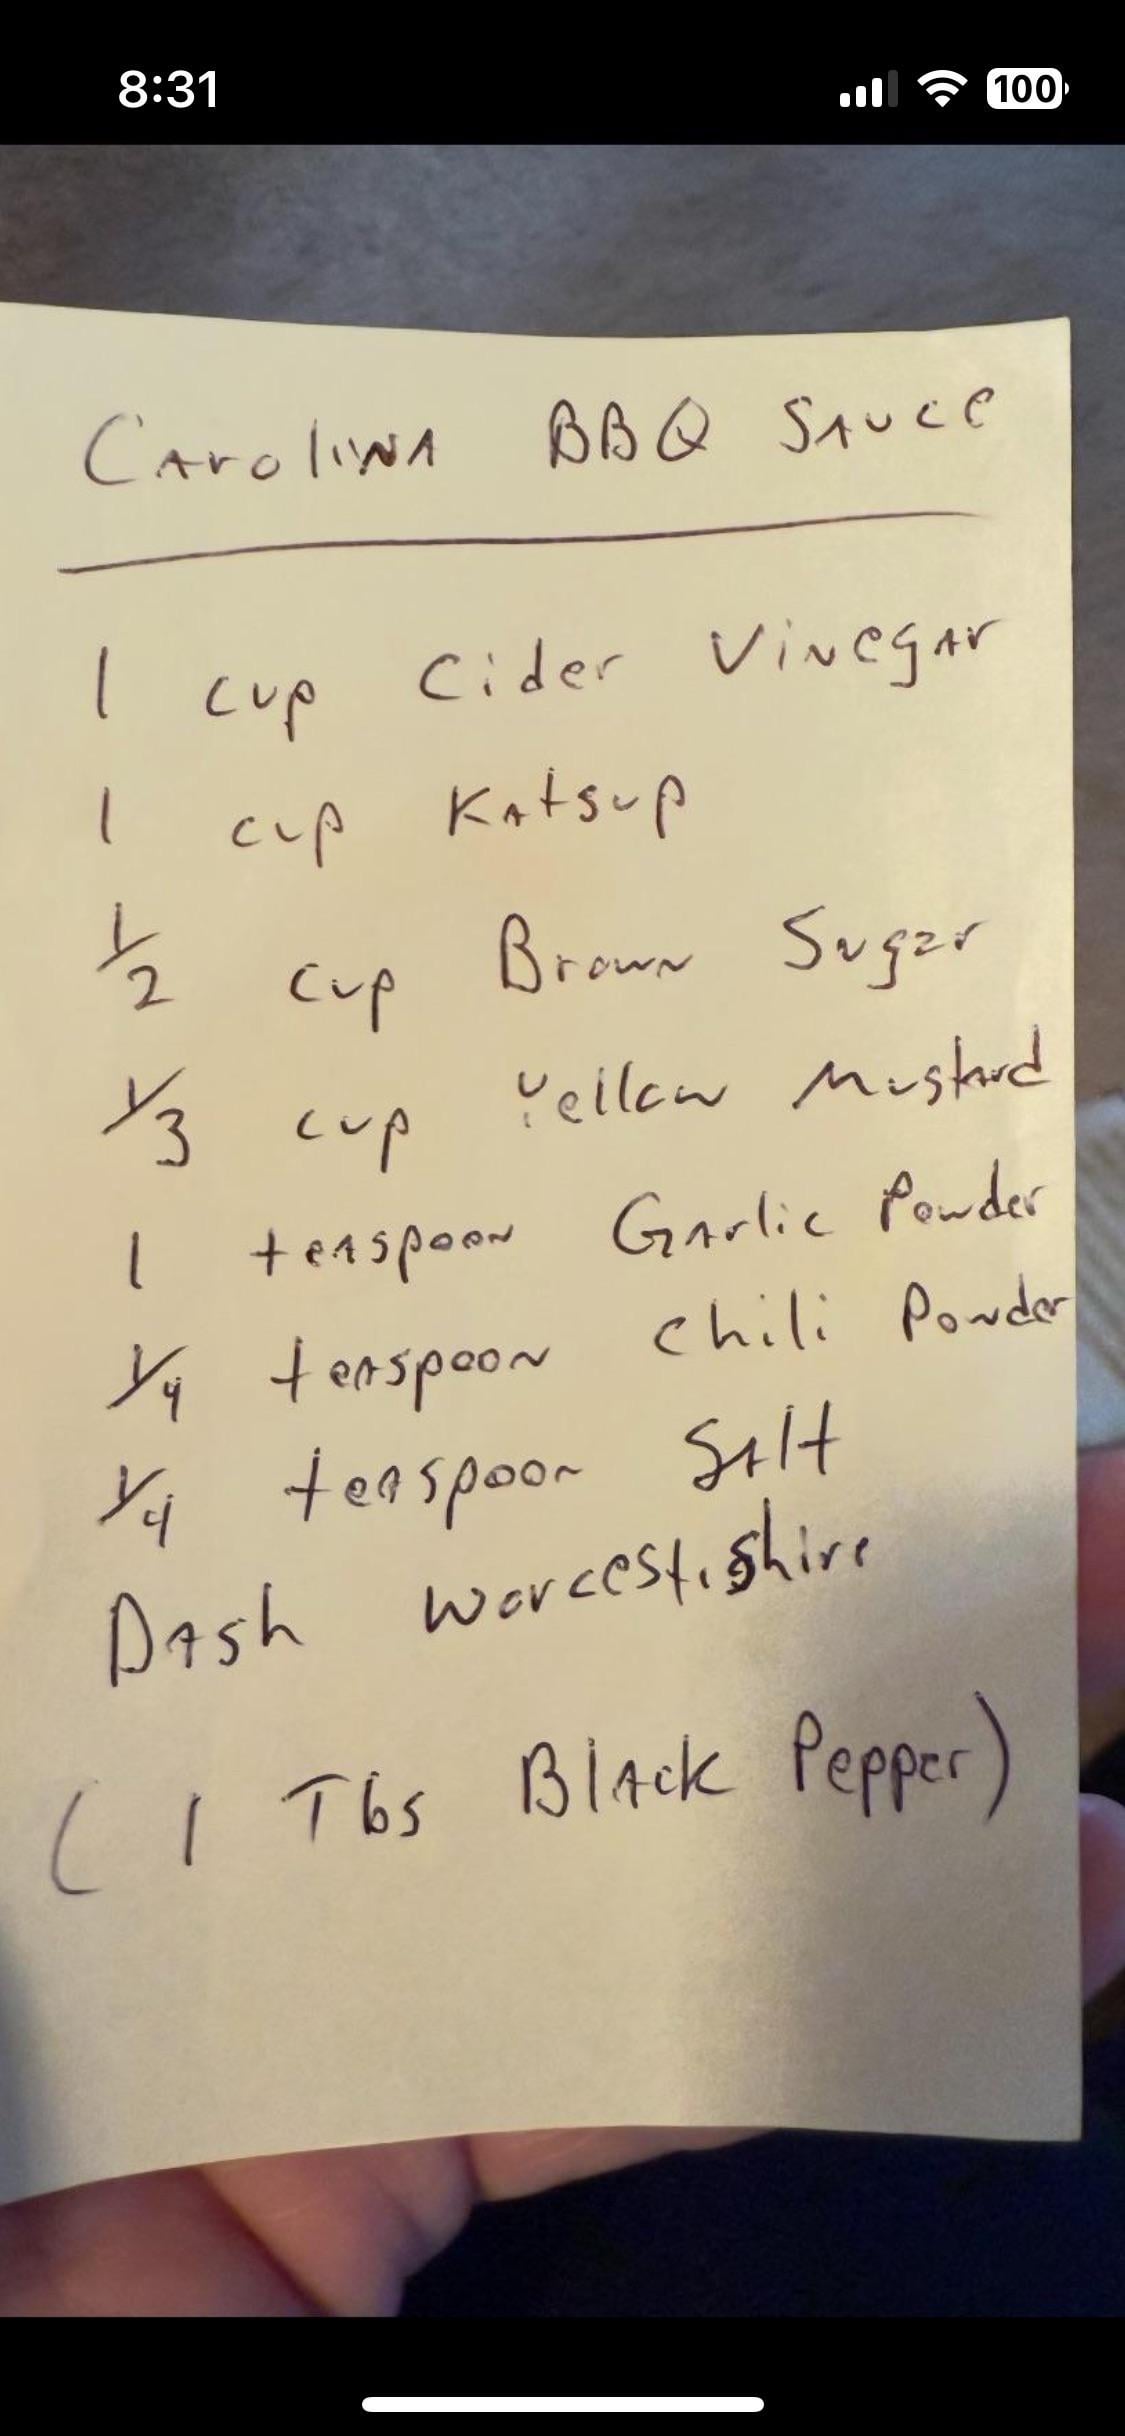 8:31
100
Carolina BBQ Sauce
1 cup Cider Vinegar
1 cup Katsup
1/2 cup Brown Sugar
1/3 cup Yellow Mustard
1 teaspoon Garlic Powder
1/4 teaspoon Chili Powder
1/4 teaspoon Salt
Dash Worcestishire
( 1 Tbs Black Pepper)